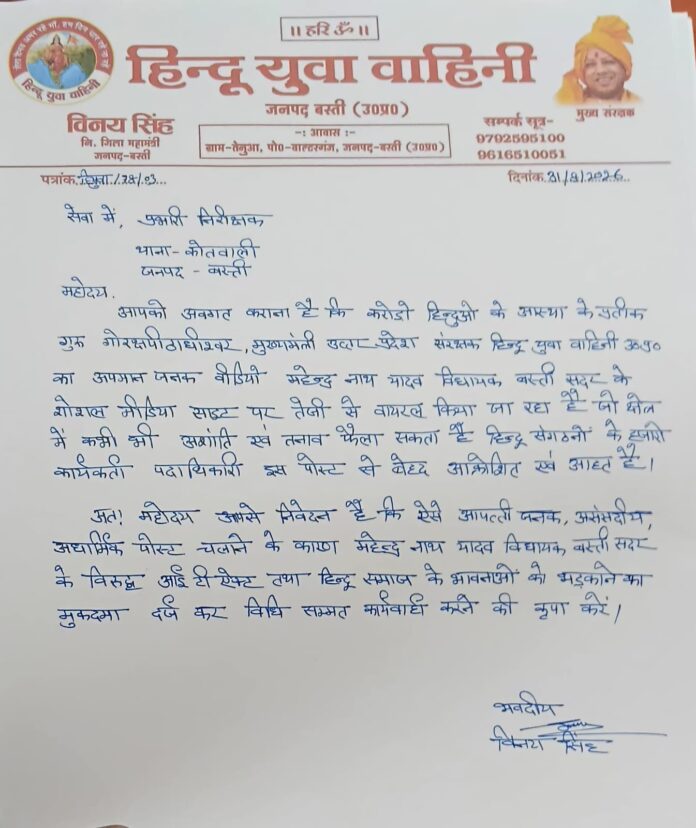 ॥ हरि ॐ ॥
हिन्दू युवा वाहिनी
हिन्दू युवा वाहिनी
जनपद बस्ती (उ०प्र०)
मुख्य संरक्षक
विनय सिंह
नि. जिला महामंत्री
जनपद-बस्ती
-: आवास :-
ग्राम-तेनुआ, पौ०-वाल्टरगंज, जनपद-बस्ती (उ०प्र०)
सम्पर्क सूत्र-
9792595100
9616510051
पत्रांक.
दिनांक.
सेवा में, प्रभारी निरीक्षक
थाना-कोतवाली
जनपद - बस्ती
महोदय.
आपको अवगत कराना है कि करोडो हिन्दुओ के आस्था के प्रतीक
गुरू गोरक्षपीठाधीश्वर, मुख्यमंत्री उत्तर प्रदेश संरक्षक हिन्दू युवा वाहिनी उ०प्र०
का अपमान जनक वीडियो महेन्द्र नाथ यादव विधायक बस्ती सदर के
शोशल मीडिया साइट पर तेजी से वायरल किया जा रहा है जो
में कभी भी अशांति एवं तनाव फैला सकता है हिन्दू संगठनों के हजारो
कार्यकर्ता पदाधिकारी इस पोस्ट से बेहद आक्रोशित एवं आहत है।
अतः महोदय आपसे निवेदन है कि ऐसे आपत्ती जनक, असंसदीय,
अधार्मिक पोस्ट चलाने के कारण महेन्द्र नाथ यादव विधायक बस्ती सदर
के विरुद्ध आई टी ऐक्ट तथा हिन्दू समाज के भावनाओं को भड़काने का
मुकदमा दर्ज कर विधि सम्मत कार्यवाही करने की कृपा करें।
भवदीय
विनय सिंह